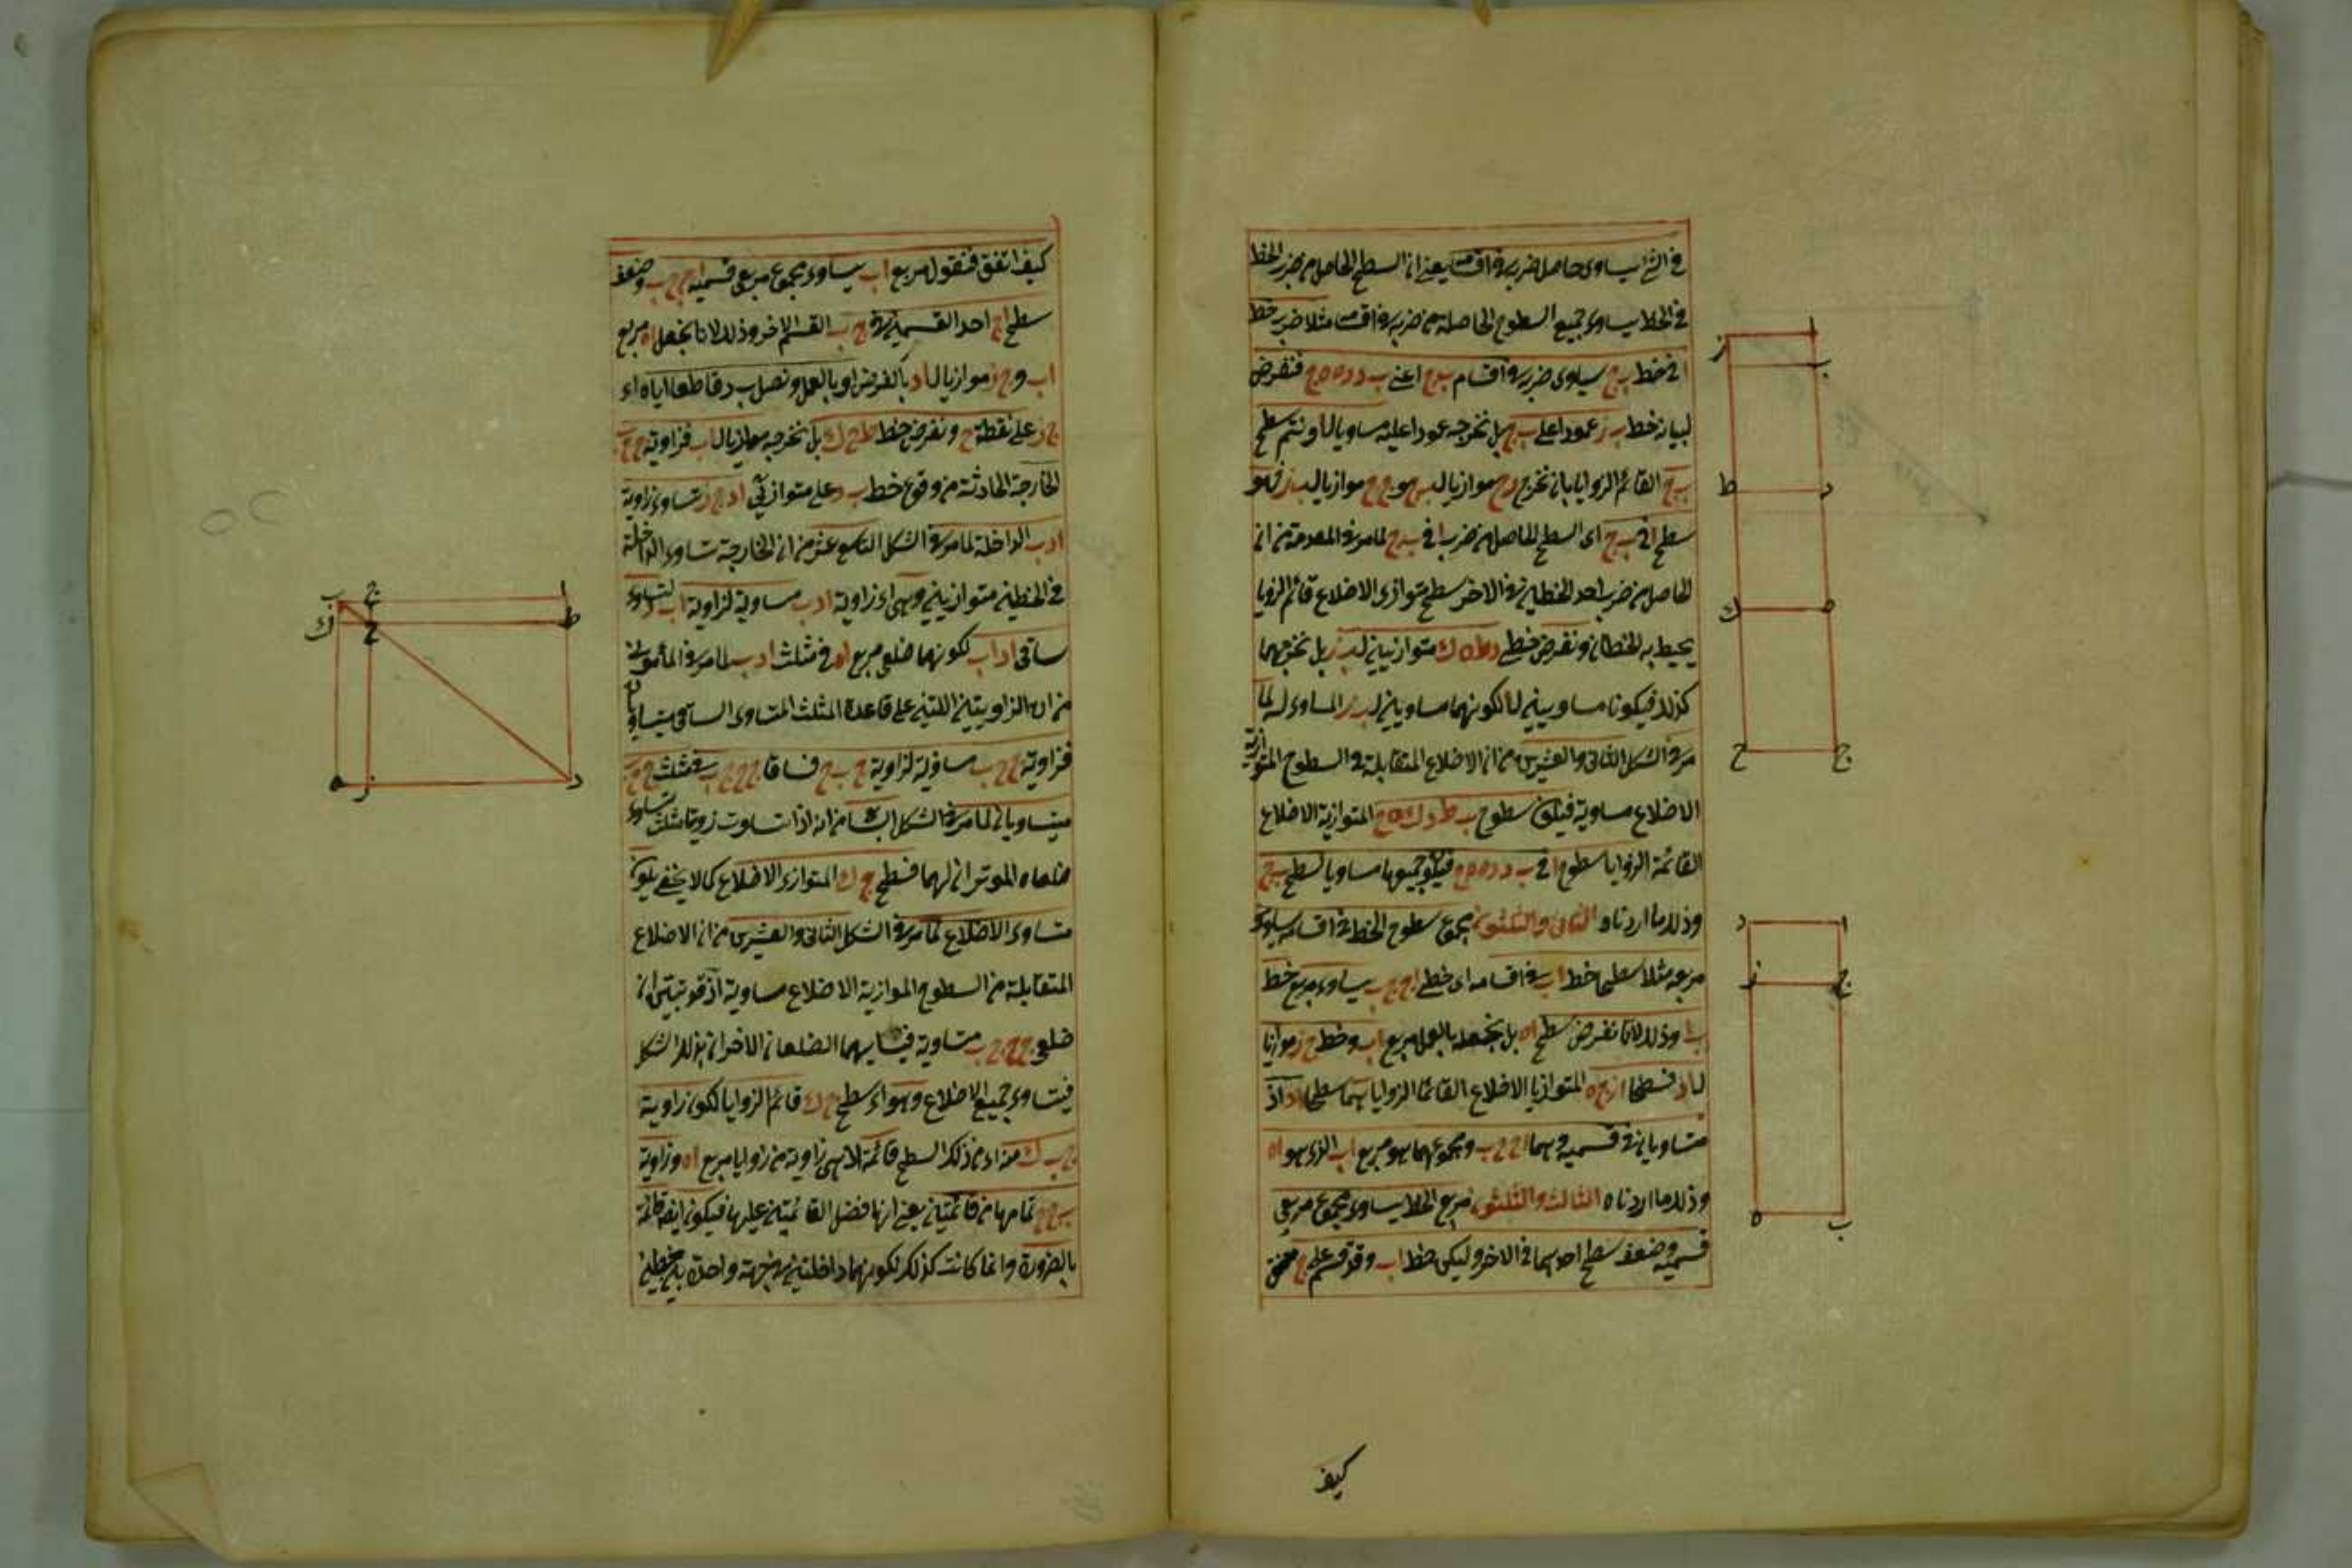 في الخط يساوي حاصل ضربه في اقسامه يعني ان السطح الحاصل من ضرب الخط
في الخط يساوي جميع السطوح الحاصلة من ضربه في اقسامه مثلا ضرب خط
ا في خط ب ج يساوي ضربه في اقسام ب ج اعني ب د د ه ه ج فنفرض
لبيانه خط ب ز عمودا على ب ج بل نخرجه عمودا عليه مساويا لا ونتم سطح
ب ح القائم الزوايا بان نخرج ز ح موازيا ل ب ج و ج ح موازيا ل ب ز فهو
سطح ا في ب ج اي السطح الحاصل من ضرب ا في ب ج لما مر في المقدمة من ان
الحاصل من ضرب احد الخطين في الاخر سطح متوازي الاضلاع قائم الزوايا
يحيط به الخطان ونفرض خطي د ط ه ك متوازيين ل ب ز بل نخرجهما
كذلك فيكونا مساويين لا لكونهما مساويين ل ب ز المساوي له لما
مر في الشكل الثاني والعشرين من ان الاضلاع المتقابلة في السطوح المتوازية
الاضلاع مساوية فيكون سطوح ب ط د ك ه ح المتوازية الاضلاع
القائمة الزوايا سطوح ا في ب د د ه ه ج فيكون جميعها مساويا لسطح ب ح
وذلك ما اردناه الثاني والثلثون مجموع سطوح الخط في اقسامه يساوي
مربعه مثلا سطحا خط ا ب في اقسامه اي خطي ا ج ج ب يساوي مربع خط
ا ب وذلك لانا نفرض سطح ا ه بل نجعله بالعمل مربع ا ب وخط ج ز موازيا
ل ا د فسطحا ا ز ج ه المتوازيا الاضلاع القائما الزوايا هما سطحا ا د اذ
متساويان في قسميه وهما ا ج ج ب ومجموعهما هو مربع ا ب الذي هو ا ه
وذلك ما اردناه الثالث والثلثون مربع الخط يساوي مجموع مربعي
قسميه وضعف سطح احدهما في الاخر وليكن خط ا ب وقد قسم على ج
كيف
كيف اتفق فنقول مربع ا ب يساوي مجموع مربعي قسميه ا ج ج ب وضعف
سطح ا ج احد القسمين في ج ب القسم الاخر وذلك لانا نجعل ا ه مربع
ا ب و ج ز موازيا ل ا د بالفرض او بالعمل ونصل ب د قاطعا اياه اي
ج ز على نقطة ح ونفرض خط ط ح ك بل نخرجه موازيا ل ا ب فزاوية ج ح ب
الخارجة الحادثة من وقوع خط ب د على متوازيي ا د ج ز تساوي زاوية
ا د ب الداخلة لما مر في الشكل التاسع عشر من ان الخارجة تساوي الداخلة
في الخطين متوازيين وهي اي زاوية ا د ب مساوية لزاوية ا ب د لتساوي
ساقي ا د ا ب لكونهما ضلعي مربع ا ه في مثلث ا د ب لما مر في المأموني
من ان الزاويتين اللتين على قاعدة المثلث المتساوي الساقين متساويتان
فزاوية ج ح ب مساوية لزاوية ج ب ح فساقا ج ح ج ب في مثلث ج ح ب
متساويان لما مر في الشكل السادس من انه اذا تساوت زاويتا مثلث تساوي
ضلعاه الموتران لهما فسطح ج ك المتوازي الاضلاع كما لا يخفى يكون
متساوي الاضلاع لما مر في الشكل الثاني والعشرين من ان الاضلاع
المتقابلة من السطوح الموازية الاضلاع مساوية اذ قد تبين ان
ضلعي ج ح ج ب متساوية فيساويهما الضلعان الاخران بذلك الشكل
فيتساوي جميع الاضلاع وهو اي سطح ج ك قائم الزوايا لكون زاوية
ج ب ك منه اي من ذلك السطح قائمة لانها زاوية من زوايا مربع ا ه وزاوية
ب ج ح تمامها من قائمتين يعني انها فضل القائمتين عليها فيكون ايضا قائمة
بالضرورة وانما كانت كذلك لكونهما داخلتين في جهة واحدة بين خطين